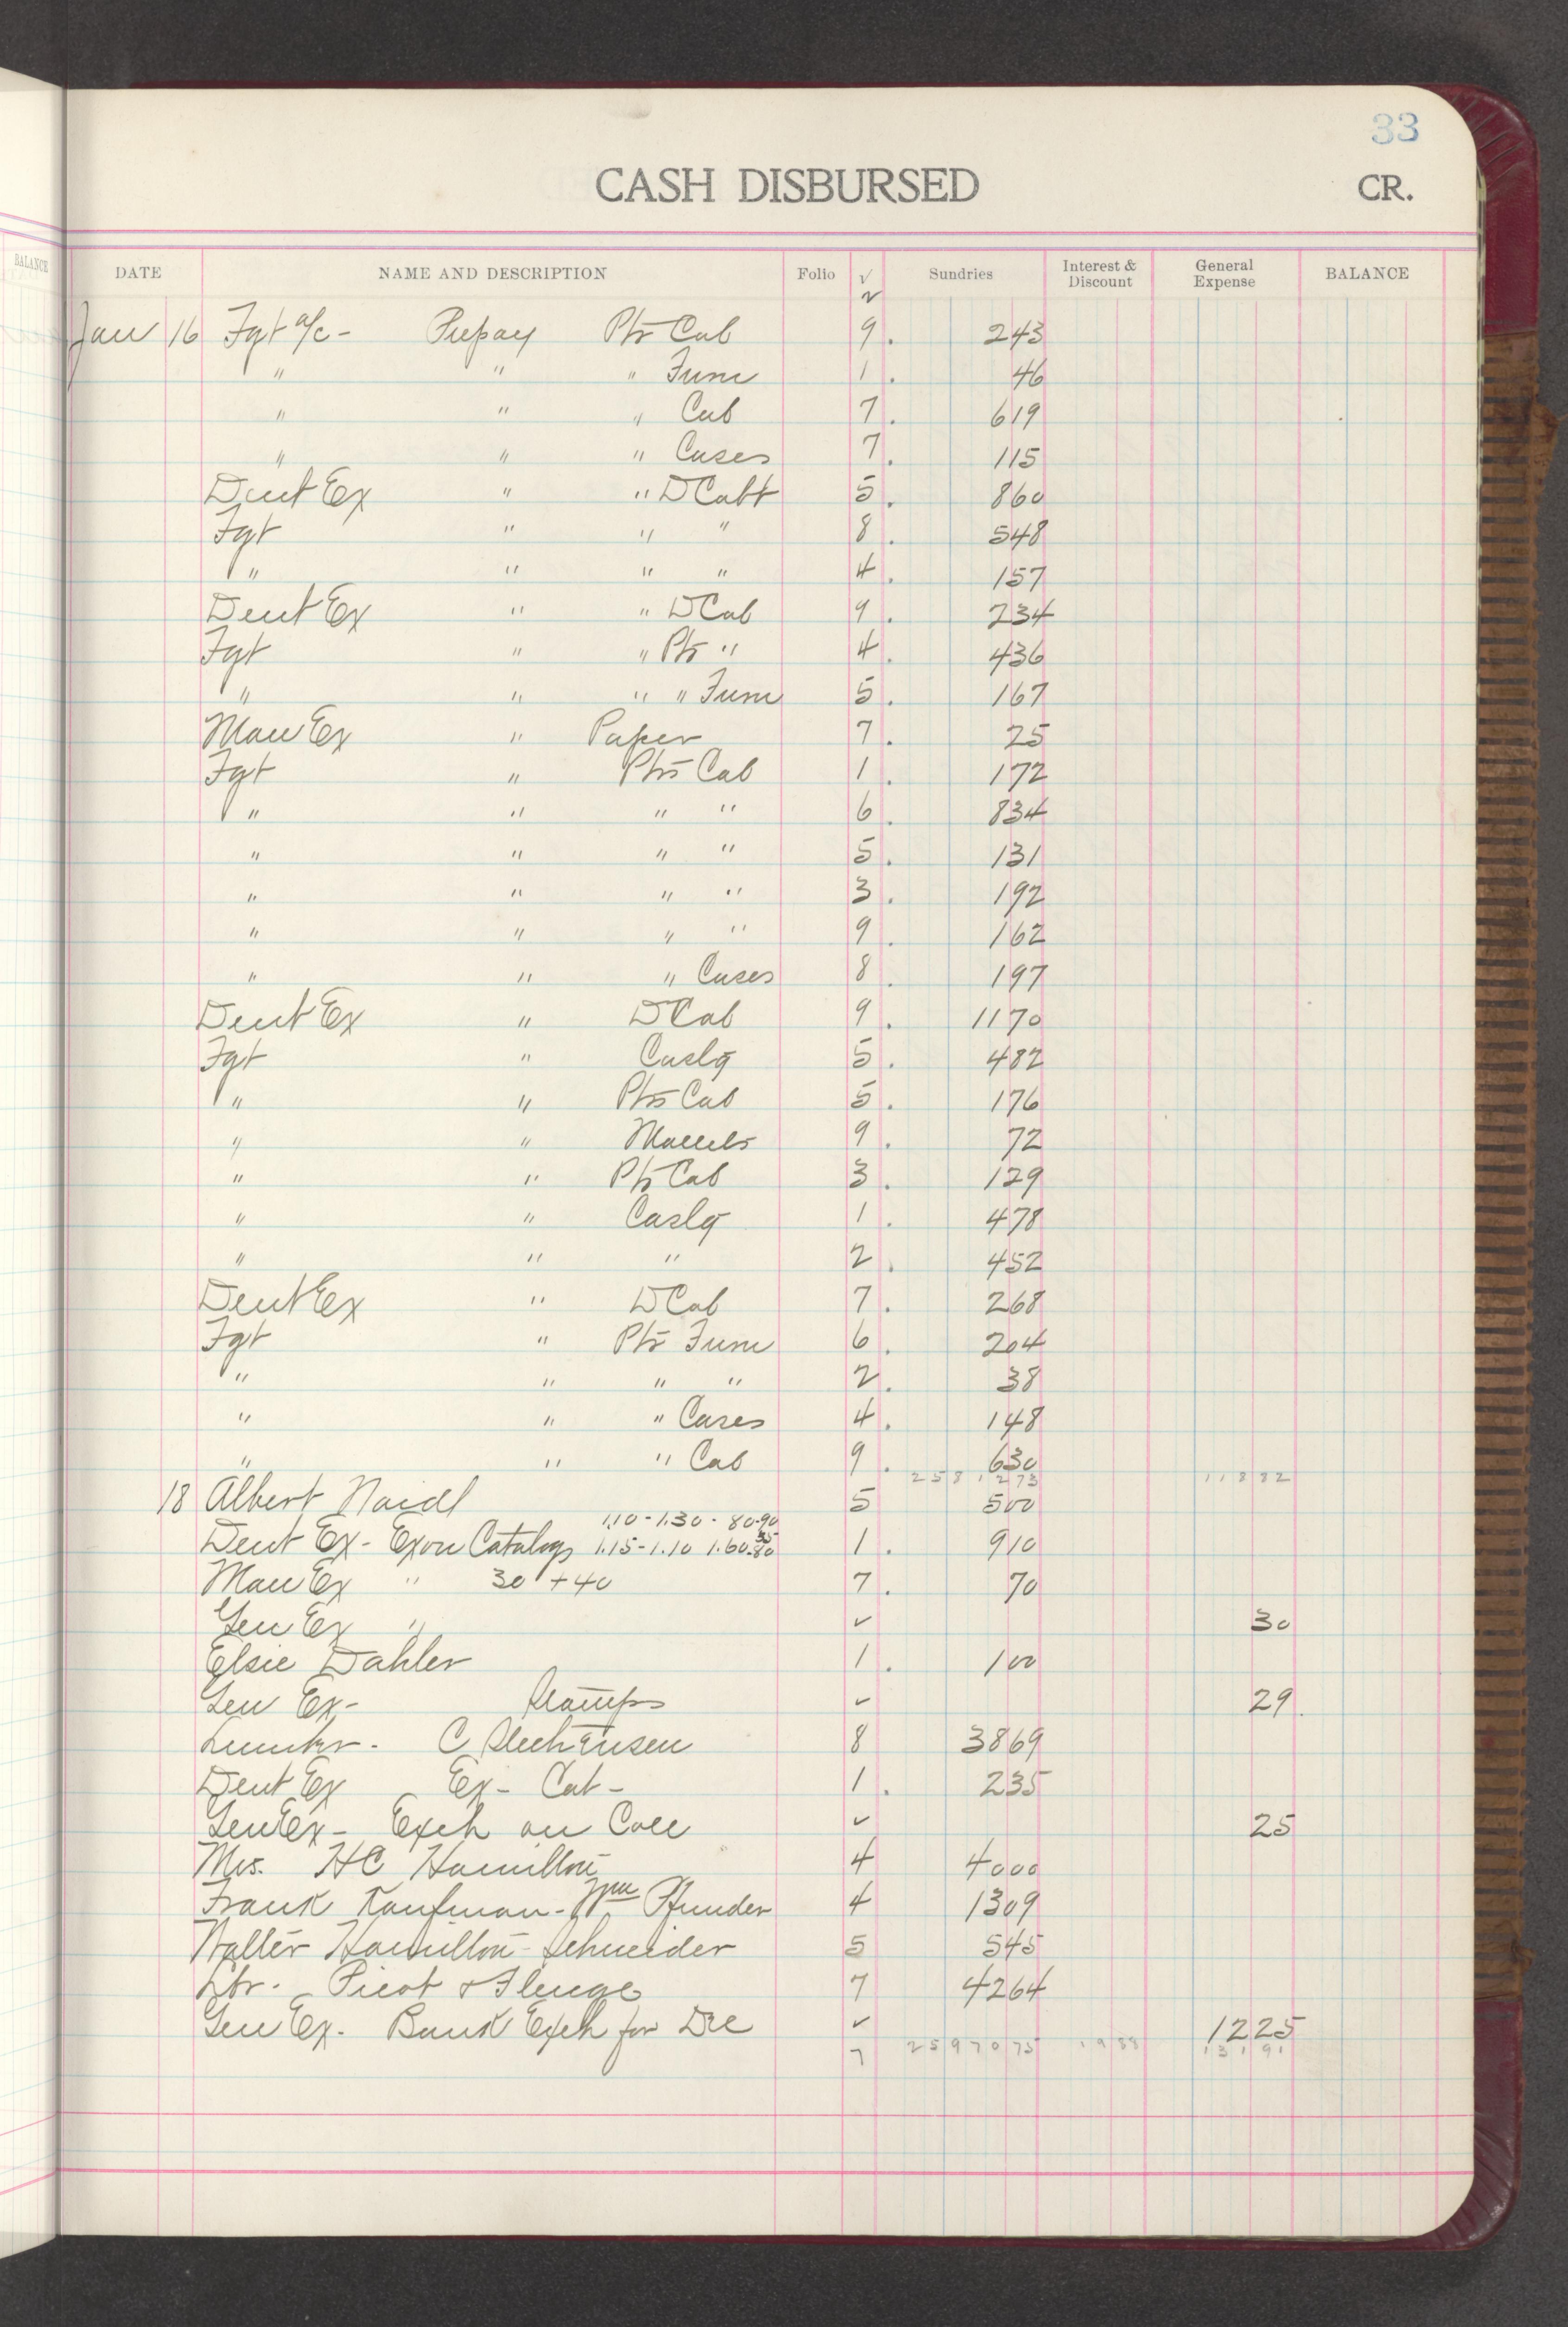 33
CASH DISBURSED CR.
BALANCE
DATE NAME AND DESCRIPTION Folio √ Sundries Interest & Discount General Expense BALANCE
Jan 16 Fgt a/c - Prepay Ptr Cab 9 . 243
" " " Furn 1 . 46
" " " Cab 7 . 619
" " " Cases 7 . 115
Dent Ex " " D Cabt 5 . 860
Fgt " " " 8 . 548
" " " " 4 . 157
Dent Ex " " D Cab 9 . 234
Fgt " " Ptr " 4 . 436
" " " " Furn 5 . 167
Man Ex " Paper 7 . 25
Fgt " Ptrs Cab 1 . 172
" " " " 6 . 834
" " " " 5 . 131
" " " " 3 . 192
" " " " 9 . 162
" " " Cases 8 . 197
Dent Ex " D Cab 9 . 1170
Fgt " Caslg 5 . 482
" " Ptrs Cab 5 . 176
" " 9 . 72
" " Ptr Cab 3 . 129
" " Caslg 1 . 478
" " " 2 . 452
Dent Ex " D Cab 7 . 268
Fgt " Ptr Furn 6 . 204
" " " " 2 . 38
" " " Cases 4 . 148
" " " Cab 9 . 630
2581273 11882
18 Albert Naidl 5 500
1.10 - 1.30 - 80-90
Dent Ex - Ex on Catalogs 1.15 - 1.10 1.60 .80 35 1 . 910
Man Ex " 30 + 40 7 . 70
Gen Ex " ✓ 30
Elsie Dahler 1 . 100
Gen Ex - Stamps ✓ 29
Lumber - C 8 3869
Dent Ex Ex - Cat - 1 . 235
Gen Ex - Exch on Coll ✓ 25
Mrs. HC Hamilton 4 4000
Frank Kaufman - Wm Pfunder 4 1309
Walter Hamilton - Schneider 5 545
Lbr - Picot & Flenge 7 4264
Gen Ex - Bank Exch for Dec ✓ 1225
7 2597075 1988 13191